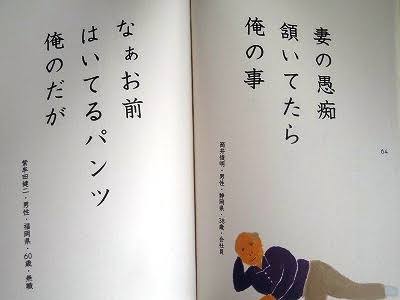 妻の愚痴
頷いてたら
俺の事
高井信明・男性・静岡県・38歳・会社員
64
なぁお前
はいてるパンツ
俺のだが
紫牟田健二・男性・福岡県・60歳・無職